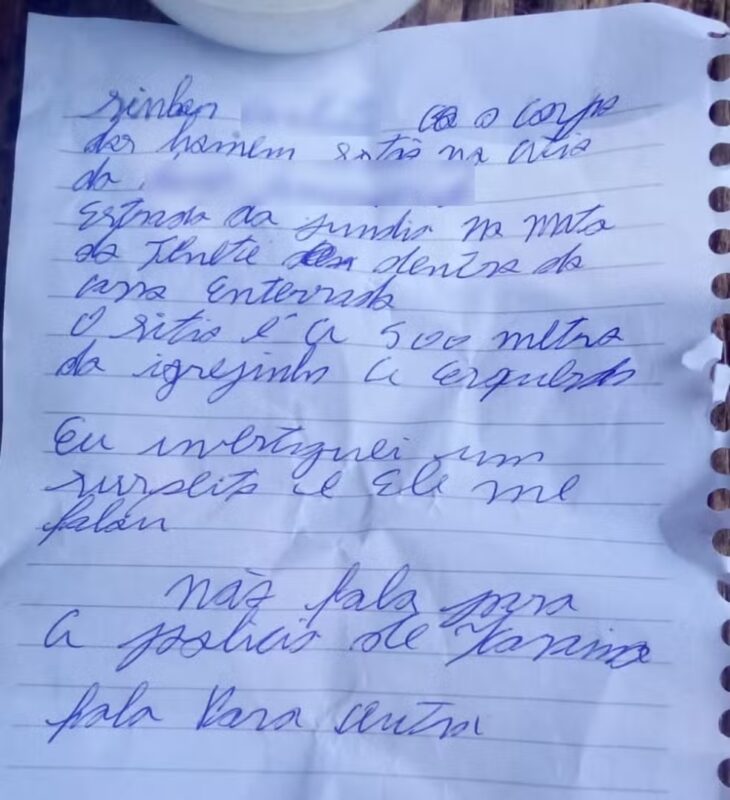 senhor o corpo
dos homem estão na área
da
Estrada da jundia na mata
da Tenete dentro da
casa Enterrada
O sitio é a 500 metro
da igrejinha a esquerda
Eu investiguei um
suspeito e Ele me
falou
não fala para
a policia de Icaraima
fala para outra